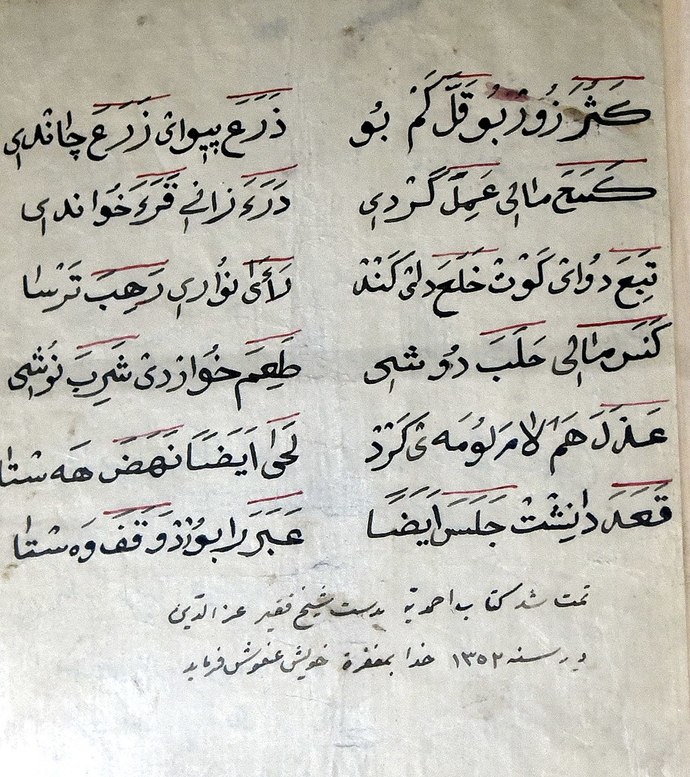 كَثُرَ زُورْ بُو قَلَّ كَمْ بُو ذَرَعَ پیوائ زَرَعَ چاندی
كَنَعَ مالی عَمِلَ كَردی دَرَءَ زانی قَرَءَ خَواندی
تَبِعَ دُوای كَوْتْ خَلَعَ دای كَنْدْ رَأی نُواری رَهِبَ تَرْسا
كَنَسَ مالی حَلَبَ دُوشی طَعِمَ خُواردی شَرِبَ نُوشی
عَذَلَ هَمْ لامَ لُومَه ی كَرْدْ لَحی اَیضًا نَهَضَ هەستا
قَعَدَ دانِشْتْ جَلَسَ اَیضًا عَبَرَ رابورْدْ وَقَفَ وَەستا
تمت شد كتاب احمدیة بدست شیخ فقیر عزالدین
در سنه ۱۳۵۲ خدا بمغفرة خویش عفوش فرماید